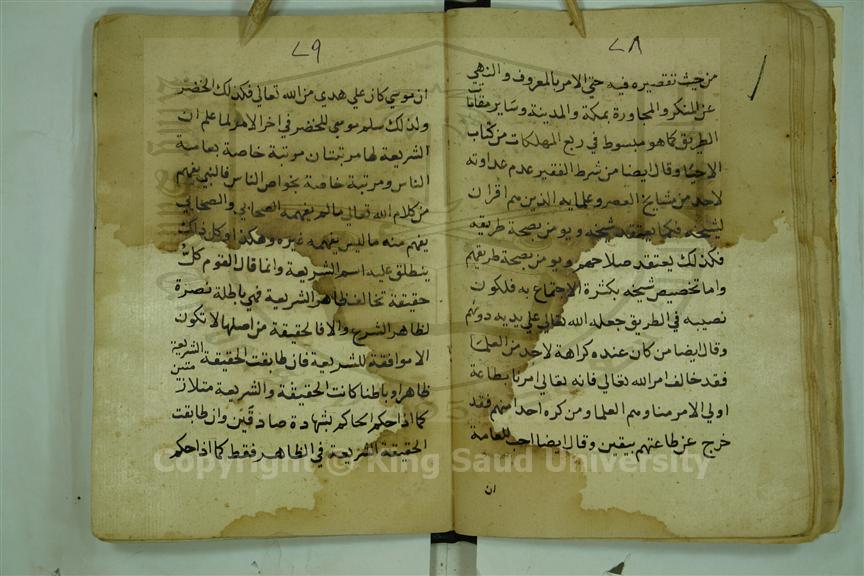 ٧٨
من حيث تقصيره فيه حتى الامر بالمعروف والنهي
عن المنكر والمجاورة بمكة والمدينة وساير مقامات
الطريق كما هو مبسوط في ربع المهلكات من كتاب
الاحيا وقال ايضا من شرط الفقير عدم عداوته
لاحد من مشايخ العصر وعلمايه الذين هم اقران
لشيخه فكما يعتقد شيخه ويومن بصحة طريقه
فكذلك يعتقد صلاحهم ويومن بصحة طريقهم
واما تخصيص شيخه بكثرة الاجتماع به فلكون
نصيبه في الطريق جعله الله تعالى على يديه دونهم
وقال ايضا من كان عنده كراهة لاحد من العلما
فقد خالف امر الله تعالى فانه تعالى امرنا بطاعة
اولي الامر منا وهم العلما ومن كره احد منهم فقد
خرج عن طاعتهم بيقين وقال ايضا احب للعامة
ان
٧٩
ان موسى كان على هدى من الله تعالى فكذلك الخضر
ولذلك سلم موسى للخضر في اخر الامر لما علم ان
الشريعة لها مرتبتان مرتبة خاصة بعامة
الناس ومرتبة خاصة بخواص الناس فالنبي يفهم
من كلام الله تعالى مالم يفهمه الصحابي والصحابي
يفهم منه ما ليس يفهمه غيره وهكذا وكل ذلك
ينطلق عليه اسم الشريعة وانما قال القوم كل
حقيقة تخالف ظاهر الشريعة فهي باطلة نصرة
لظاهر الشرع والا فالحقيقة من اصلها لا تكون
الا موافقة للشريعة فان طابقت الحقيقة الشريعة
ظاهرا وباطنا كانت الحقيقة والشريعة متلازمتين
كما اذا حكم الحاكم بشهادة صادقين وان طابقت
الحقيقة الشريعة في الظاهر فقط كما اذا حكم
Copyright © King Saud University